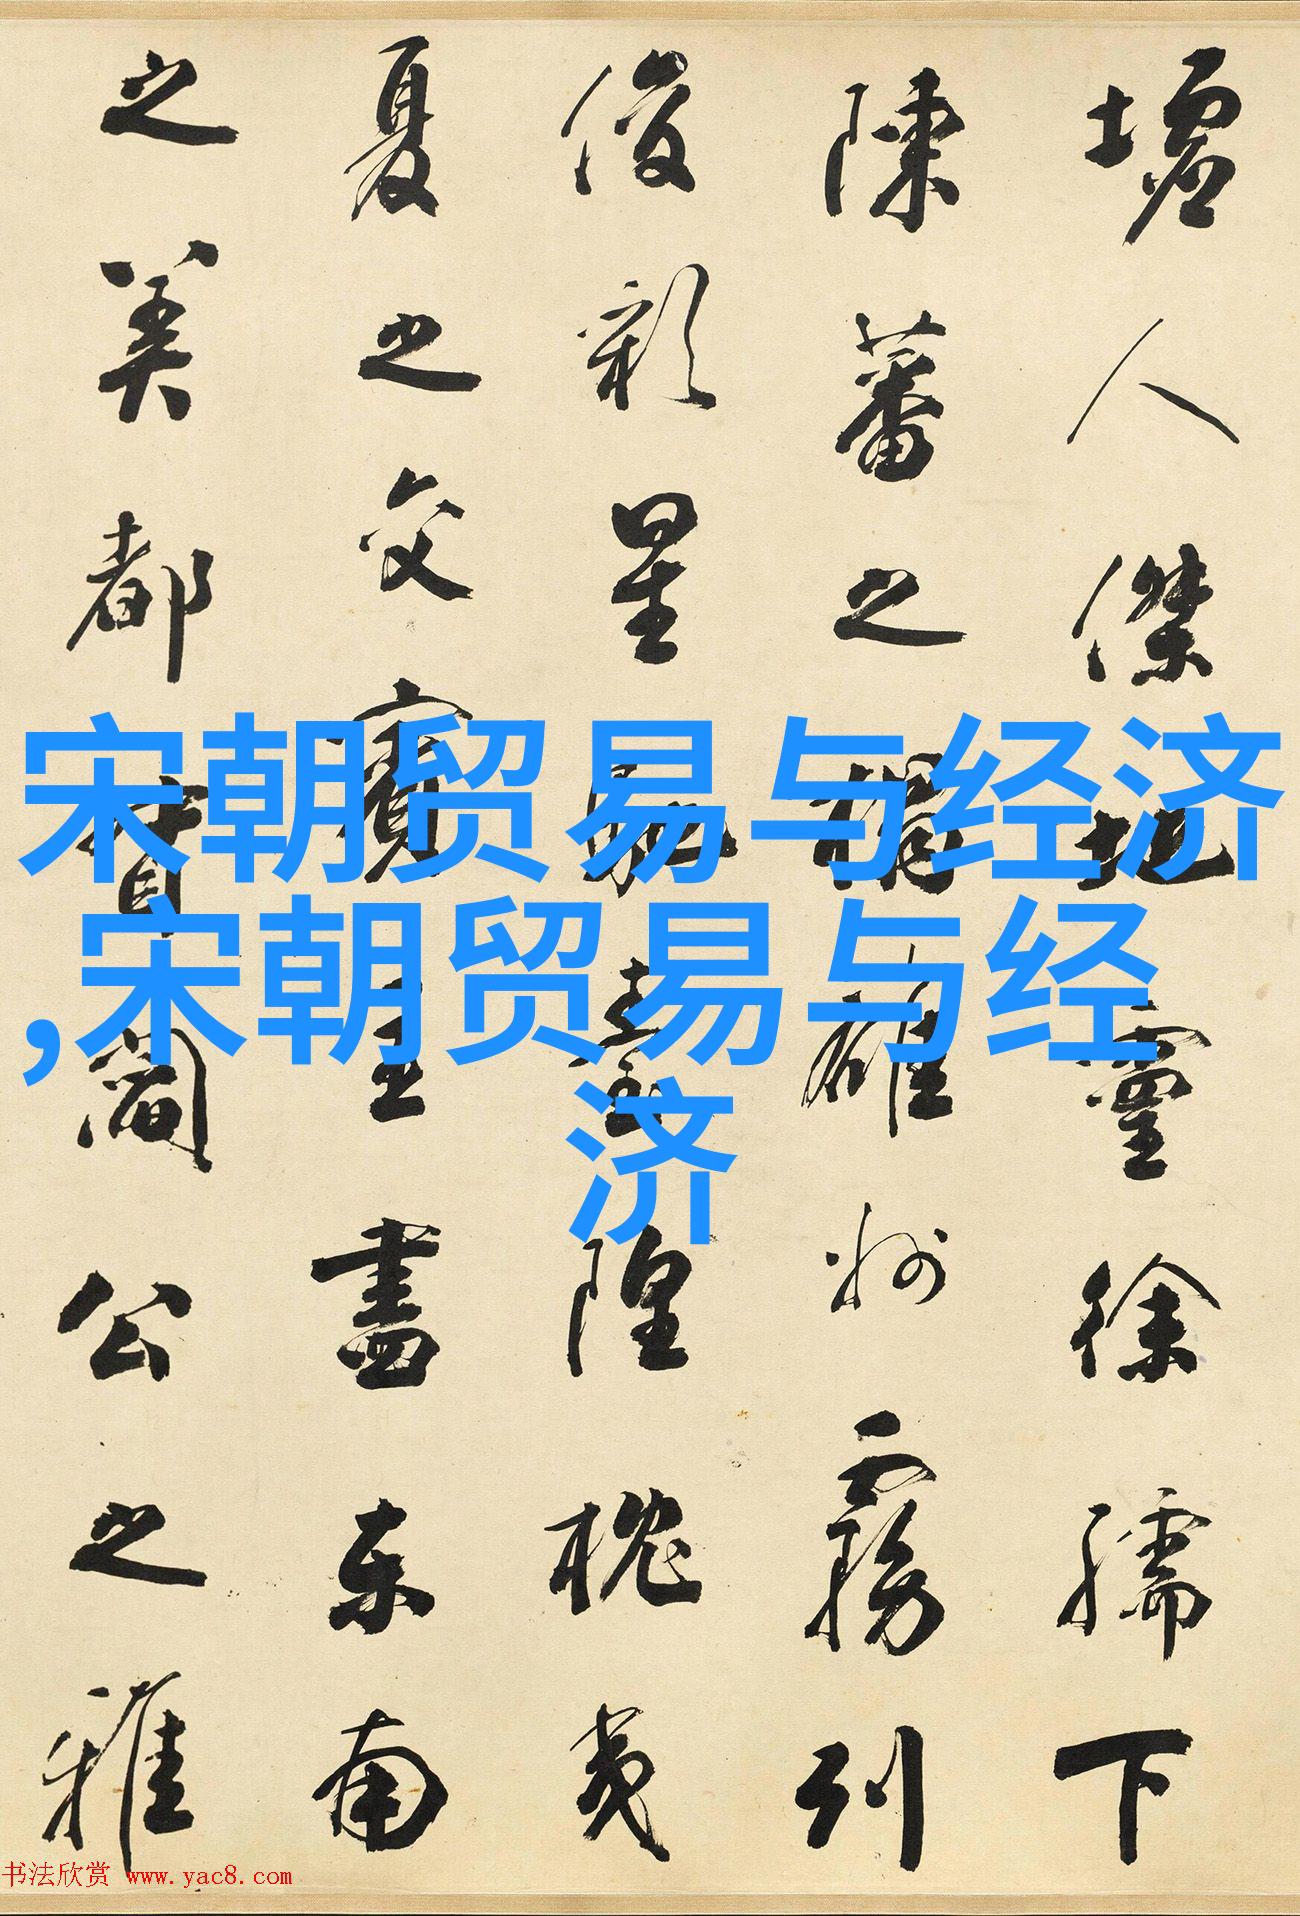 墟人傑地靈徐孺下
陳蕃之榻雄州霧列
俊彩星馳臺隍枕夷
夏之交賓主盡東南
之美都督閻公之雅
宋朝贸易与经济
,宋朝贸易与经
济
书法欣赏 www.yac8.com